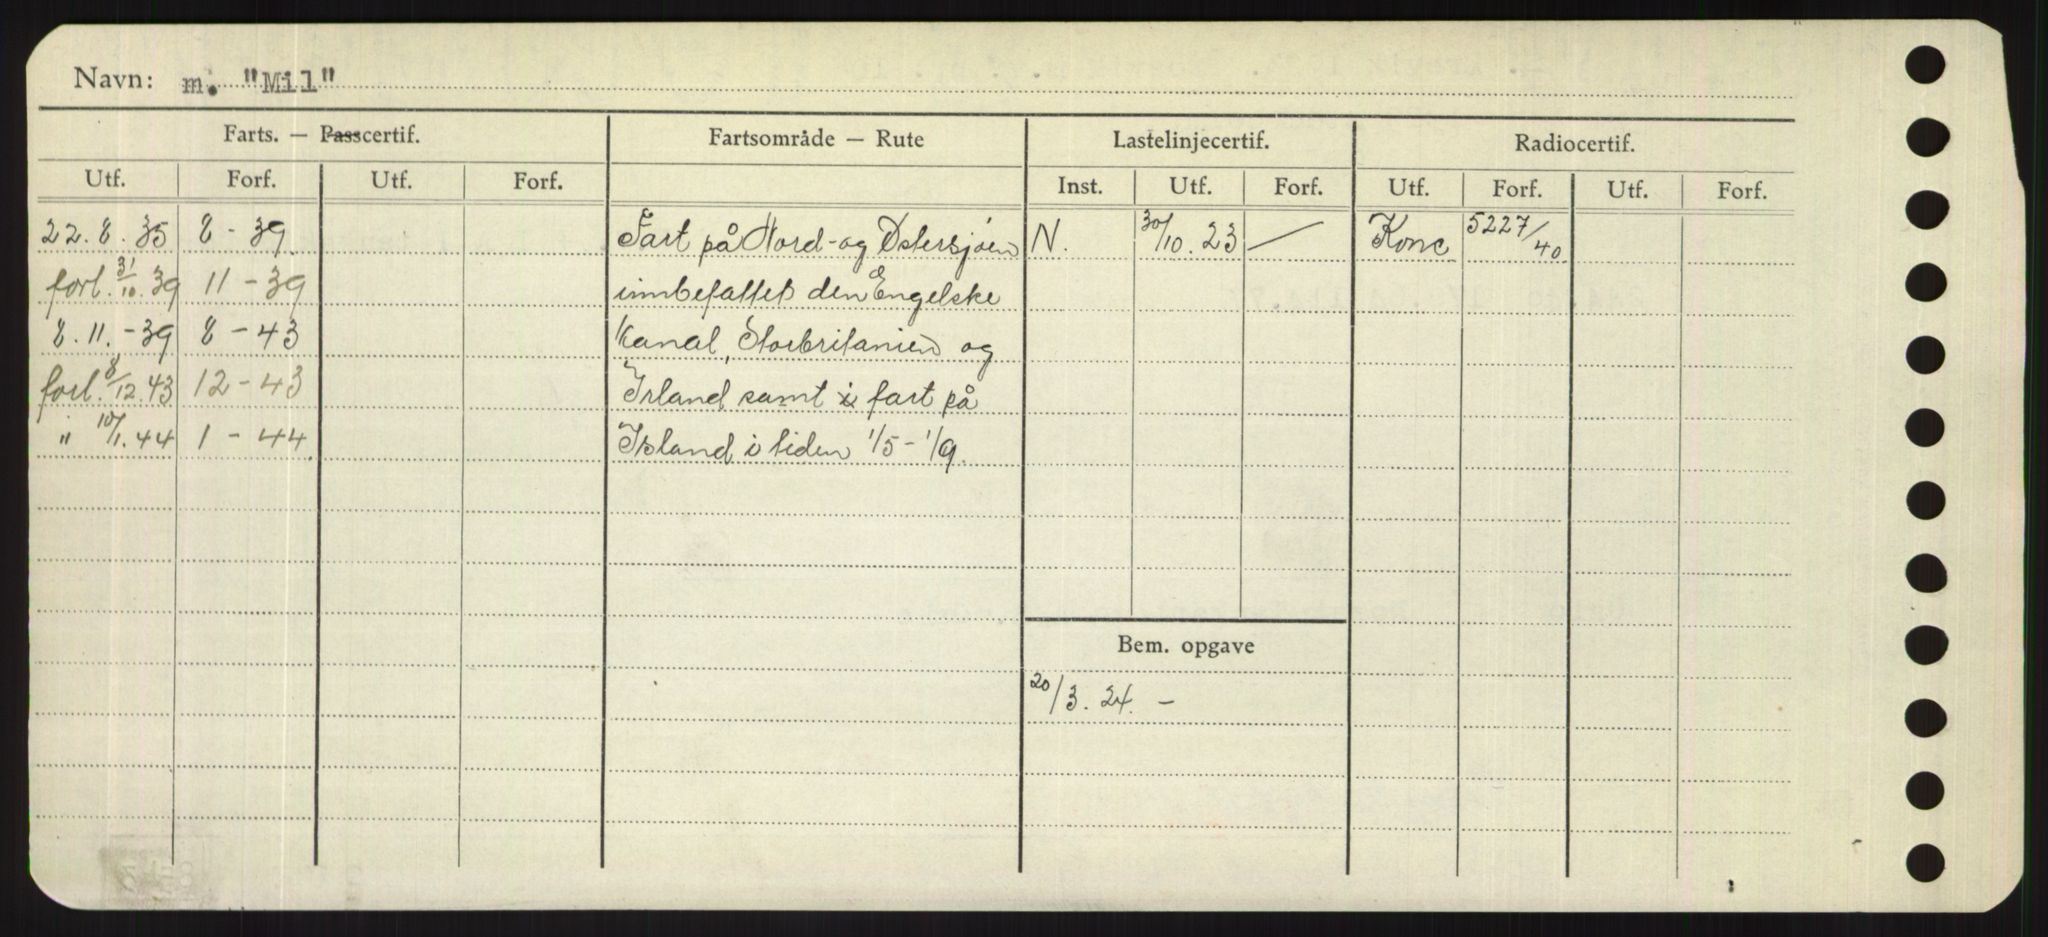 Navn: m. "Mil"
Farts. — Passcertif. Fartsområde — Rute Lastelinjecertif. Radiocertif.
Utf. Forf. Utf. Forf. Inst. Utf. Forf. Utf. Forf. Utf. Forf.
22. 8. 35 8 - 39. Fart på Nord- og Østersjøen N. 30/10. 23 — Konc 5227/40
forl. 31/10. 39 11 - 39 innbefattet den Engelske
8. 11. - 39 8 - 43 Kanal, Storbritanien og
forl. 8/12. 43 12 - 43 Irland samt i fart på
" 10/1. 44 1 - 44. Island i tiden 1/5 - 1/9.
Bem. opgave
20/3. 24. -